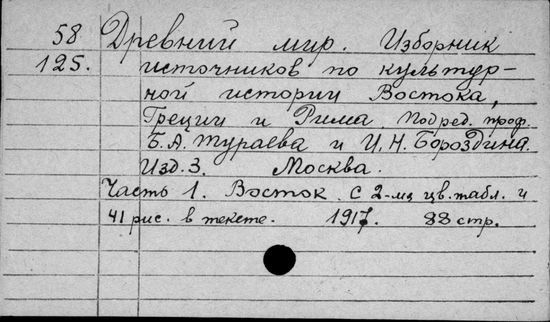 58 Древний мир. Изборник
125. источников по культур-
ной истории Востока,
Греции и Рима. Под ред. проф.
Б. А. Тураева и И. Н. Бороздина.
Изд. 3. Москва.
Часть 1. Восток. С 2-мя цв. табл. и
41 рис. в тексте. 1917. 88 стр.